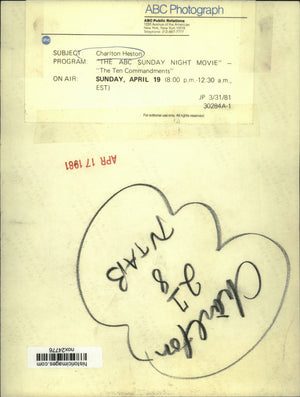 ABC Photograph
ABC Public Relations
1330 Avenue of the Americas
New York, New York 10019
Telephone: 212-887-7777
abc
SUBJECT: Charlton Heston
PROGRAM: "THE ABC SUNDAY NIGHT MOVIE" –
"The Ten Commandments"
ON AIR: SUNDAY, APRIL 19 (8:00 p.m.-12:30 a.m.,
EST)
JP 3/31/81
30284A-1
For editorial use only. All rights reserved.
APR 17 1981
NTAB
Charlton
historicimages.com
nox24776